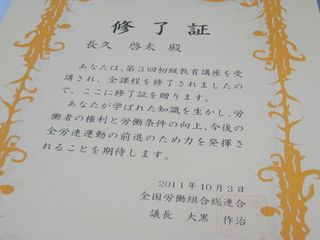 修了証
長久 啓太 殿
あなたは、第3回初級教育講座を受
講され、全課程を修了されましたの
で、ここに修了証を贈ります。
あなたが学ばれた知識を生かし、労
働者の権利と労働条件の向上、今後の
全労連運動の前進のため力を発揮さ
れることを期待します。
2011年10月3日
全国労働組合総連合
議長 大黒 作治